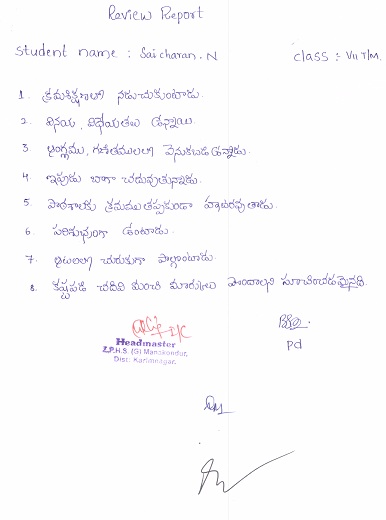 Review Report
Student name : Sai charan. N class : VII T/M.
1. క్రమశిక్షణతో నడుచుకుంటాడు.
2. వినయ, విధేయతలు ఉన్నాయి.
3. ఆంగ్లము, గణితములలో వెనుకబడి ఉన్నాడు.
4. ఇపుడు బాగా చదువుతున్నాడు.
5. పాఠశాలకు క్రమము తప్పకుండా హాజరవుతాడు.
6. పరిశుభ్రంగా ఉంటాడు.
7. ఆటలలో చురుకుగా పాల్గొంటాడు.
8. కష్టపడి చదివి మంచి మార్కులు పొందాలని సూచించడమైనది.
I/C
Headmaster
Z.P.H.S. (G) Manakondur,
Dist: Karimnagar.
Pd